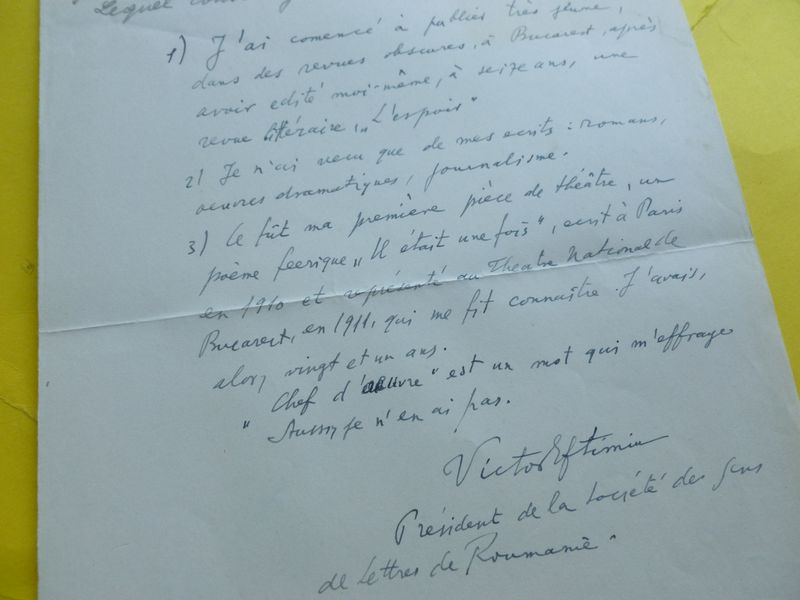 Lequel
1) J'ai comencé à publier très jeune,
dans des revues obscures, à Bucarest, après
avoir edité moi-même, à seize ans, une
revue littéraire, „L'espoir"
2) Je n'ai vecu que de mes ecrits: romans,
oeuvres dramatiques, journalisme.
3) Ce fût ma première pièce de théâtre, un
poème feerique „Il était une fois", ecrit à Paris
en 1910 et représenté au Theatre National de
Bucarest, en 1911, qui me fit connaître. J'avais,
alors, vingt et un ans.
„Chef d'oeuvre" est un mot qui m'effraye
Aussi je n'en ai pas.
Victor Eftimiu
Président de la Société des Gens
de Lettres de Roumanie.